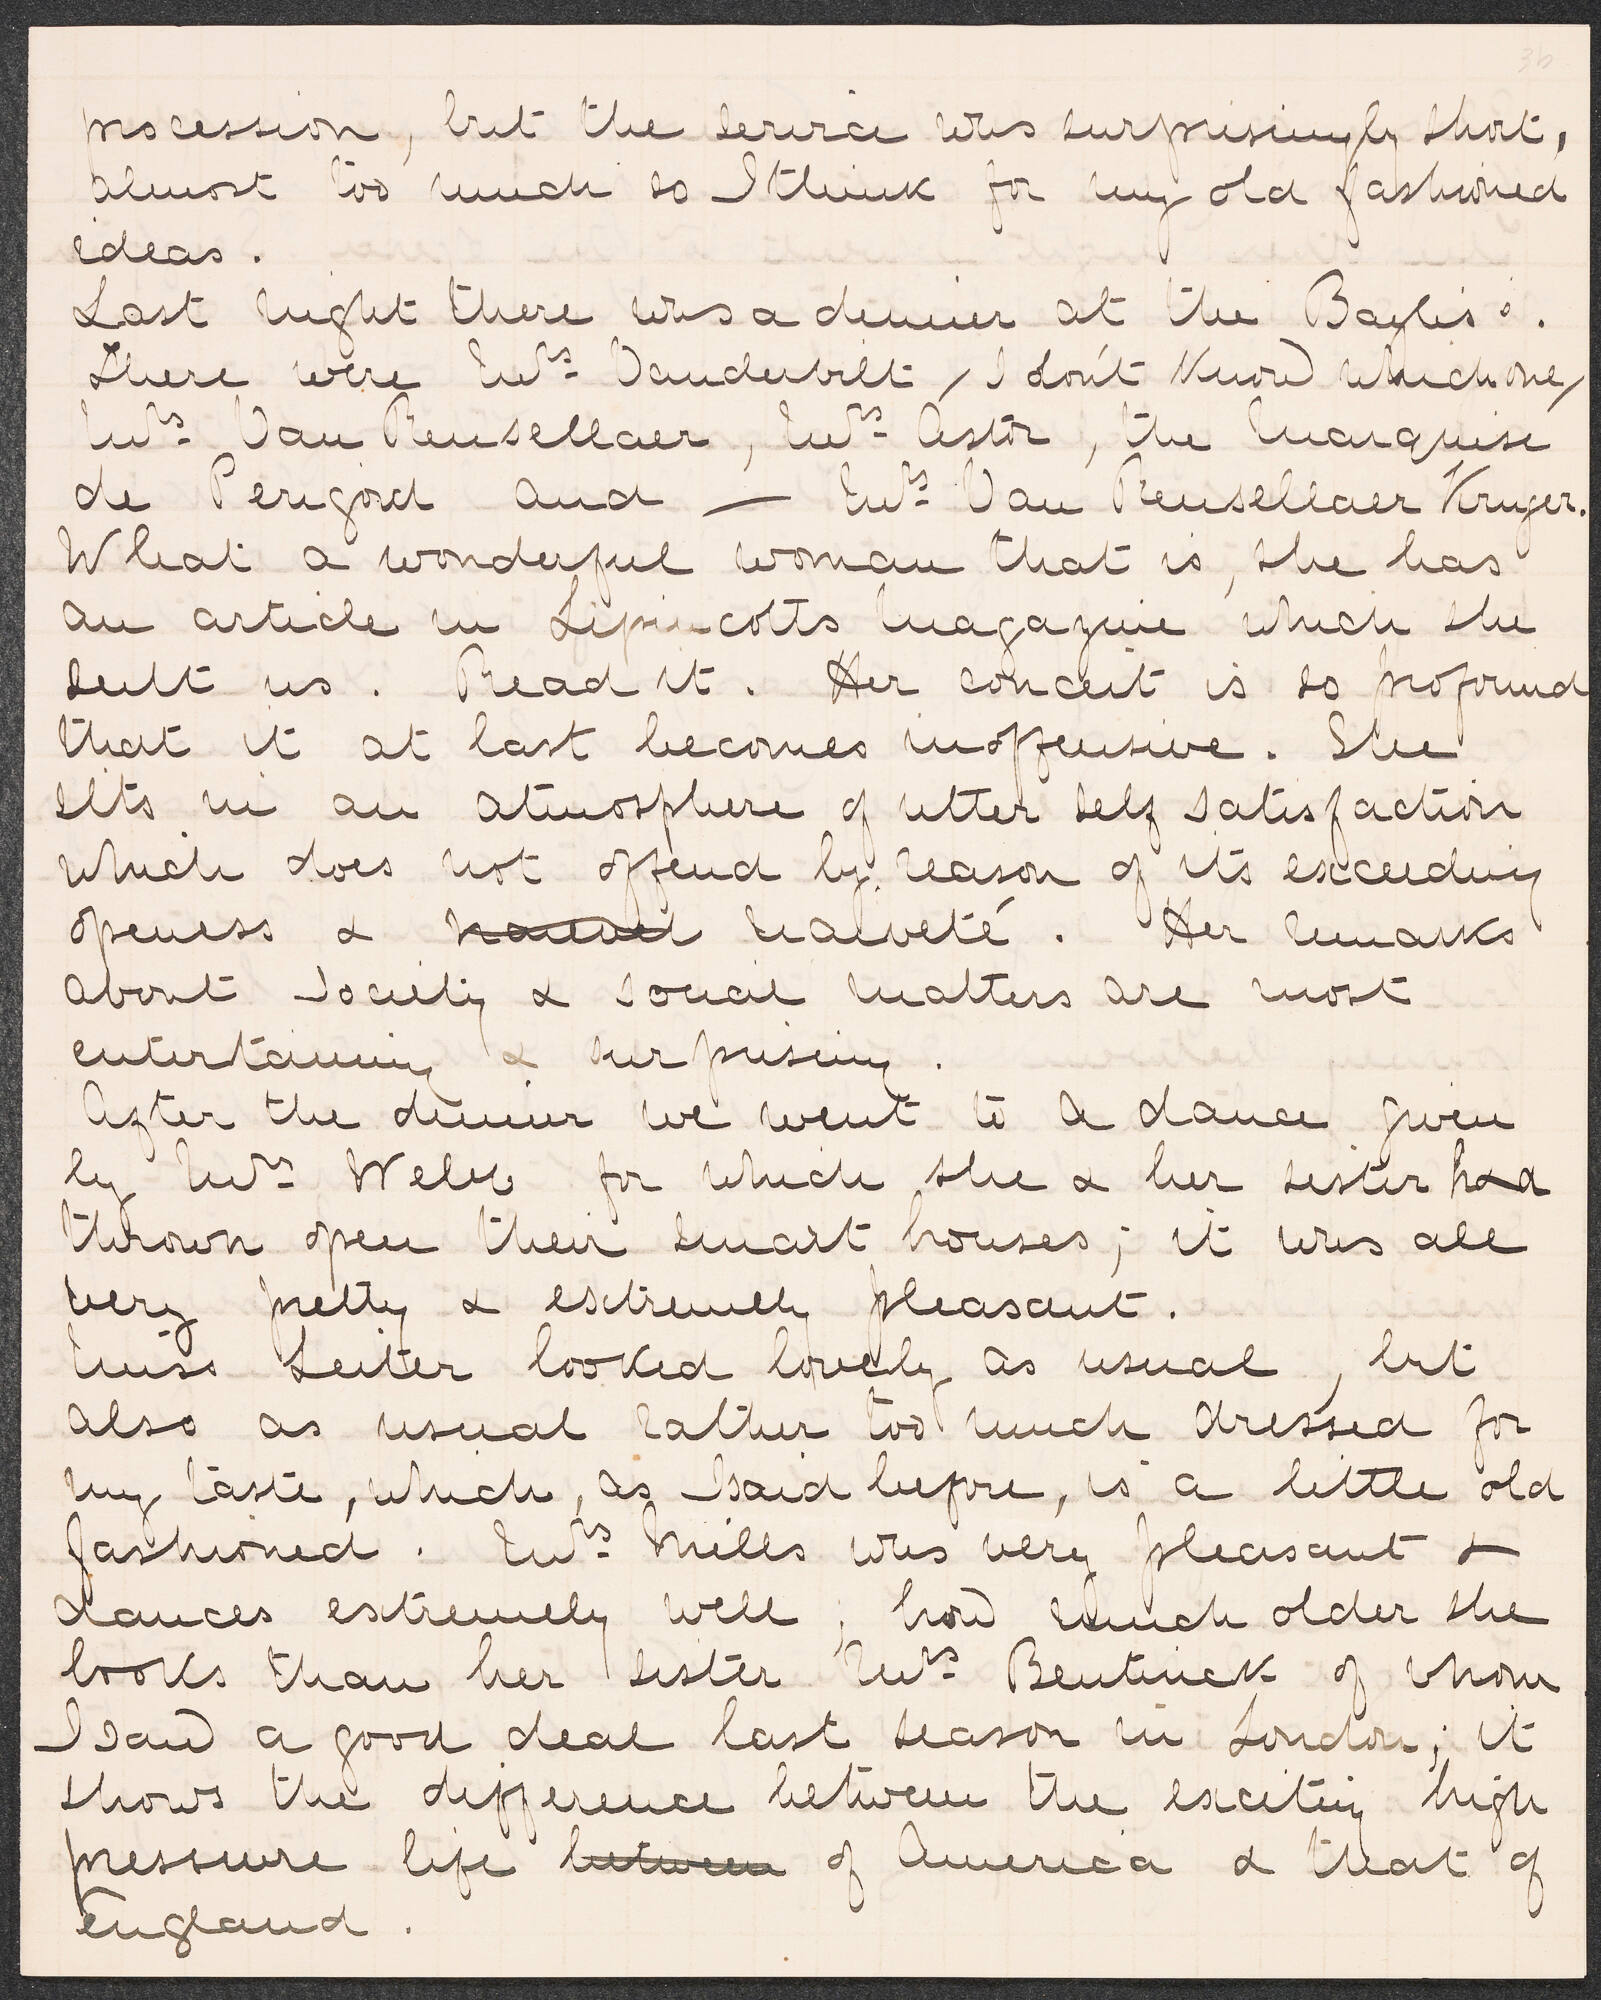 36
procession, but the service was surprisingly short,
almost too much so I think for my old fashioned
ideas.
Last night there was a dinner at the Baylis's.
There were Mrs Vanderbilt / I don't know which one /
Mrs Van Rensellaer, Mrs Astor, the Marquise
de Perigord and — Mrs Van Rensellaer Kruger.
What a wonderful woman that is, she has
an article in Lipincotts Magazine which she
sent us. Read it. Her conceit is so profound
that it at last becomes inoffensive. She
sits in an atmosphere of utter self satisfaction
which does not offend by reason of its exceeding
openess & naiveté. Her remarks
about society & social matters are most
entertaining & surprising.
After the dinner we went to a dance given
by Mrs Webb for which she & her sister had
thrown open their smart houses; it was all
very pretty & extremely pleasant.
Miss Leiter looked lovely as usual, but
also as usual rather too much dressed for
my taste, which, as I said before, is a little old
fashioned. Mrs Mills was very pleasant &
dances extremely well; how much older she
looks than her sister Mrs Bentinck of whom
I saw a good deal last season in London; it
shows the difference between the exciting high
pressure life between of America & that of
England.